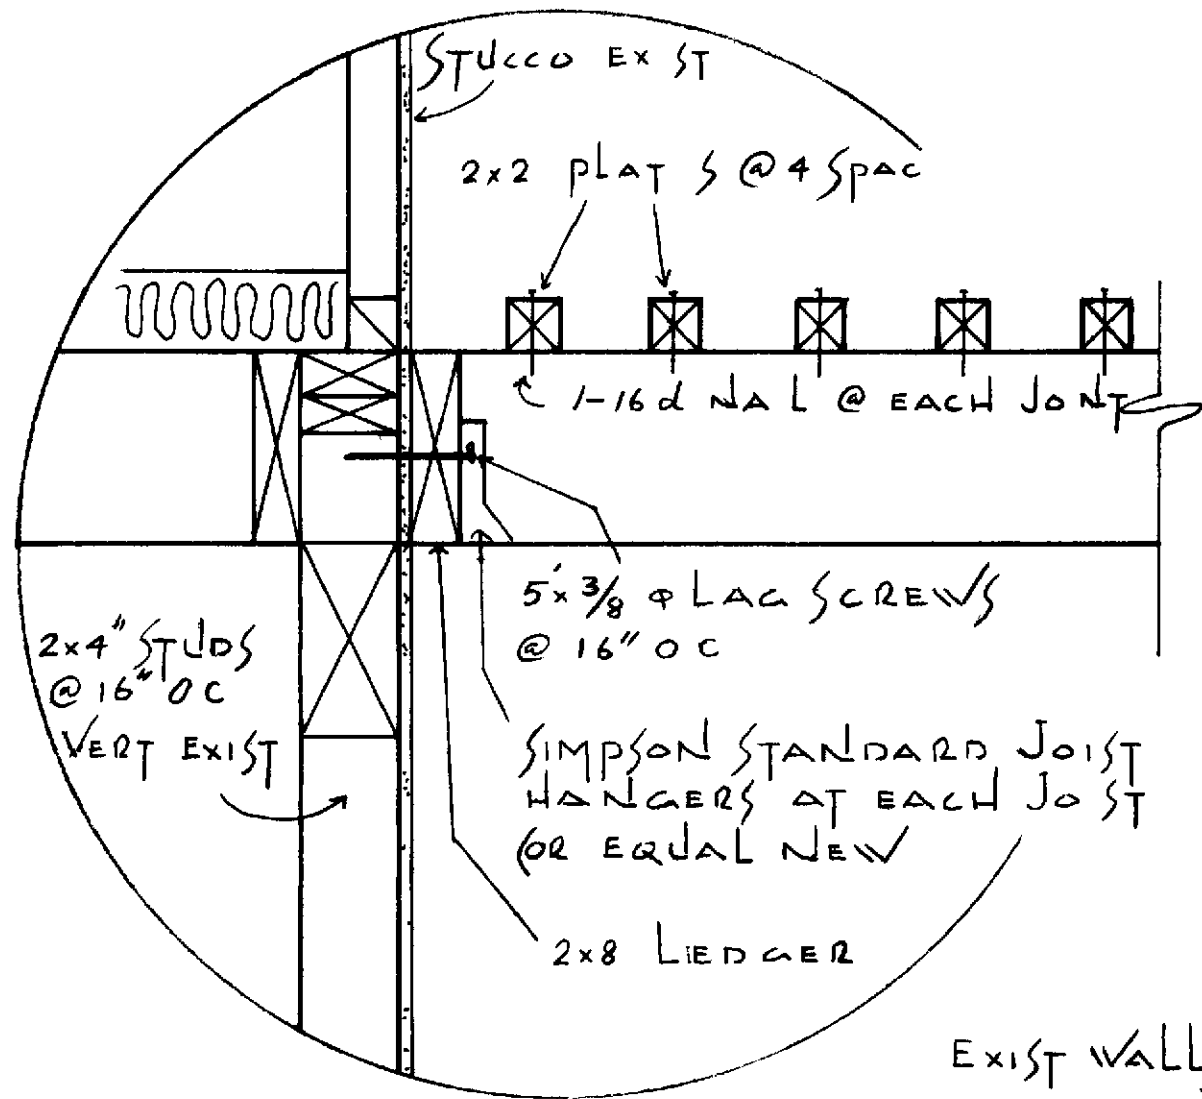 STUCCO EX ST
2x2 PLAT S @ 4 SPAC
1-16 d NA L @ EACH JO NT
5'x 3/8 φ LAG SCREWS
@ 16" O C
2x4" STUDS
@ 16" O C
VERT EXIST
SIMPSON STANDARD JOIST
HANGERS AT EACH JO ST
(OR EQUAL NEW
2x8 LEDGER
EXIST WALL